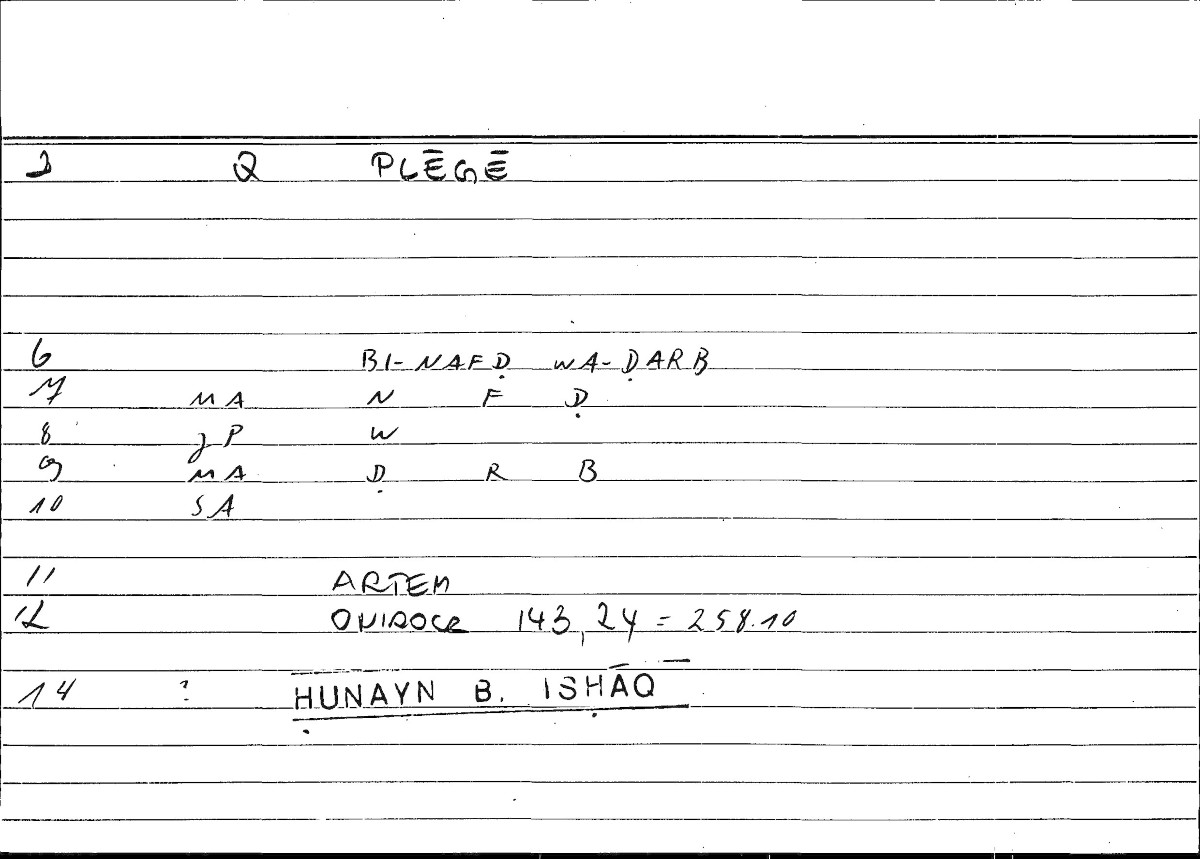 2 Q PLĒGĒ
6 BI-NAFḌ WA-ḌARB
7 MA N F Ḍ
8 JP W
9 MA Ḍ R B
10 SA
11 ARTEM
12 ONIROCR 143,24 = 258.10
14 ? ḤUNAYN B. ISḤĀQ